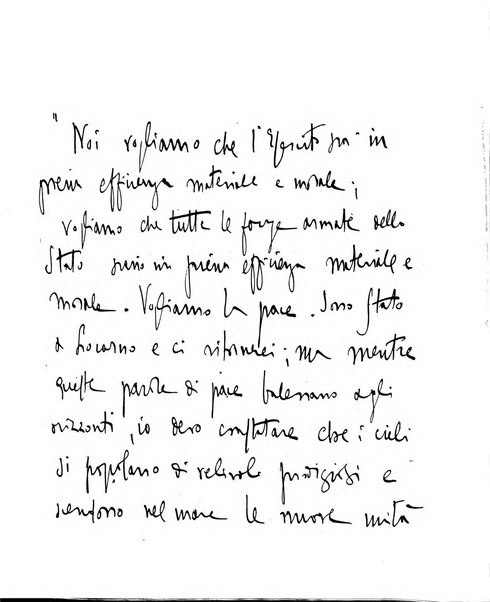 " Noi vogliamo che l'Esercito sia in
piena efficienza materiale e morale ;
vogliamo che tutte le forze armate dello
Stato siano in piena efficienza materiale e
morale . Vogliamo la pace . Sono stato
a Locarno e ci ritornerei ; ma mentre
queste parole di pace balenano agli
orizzonti , io devo constatare che i cieli
si popolano di velivoli prodigiosi e
scendono nel mare le nuove unità